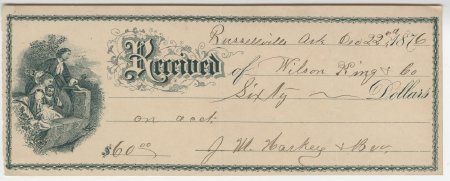 Russellville Ark Dec 22nd 1876
Received of Wilson King & Co
Sixty Dollars
on acct
$60.00 J. M. Harkey & Bro.